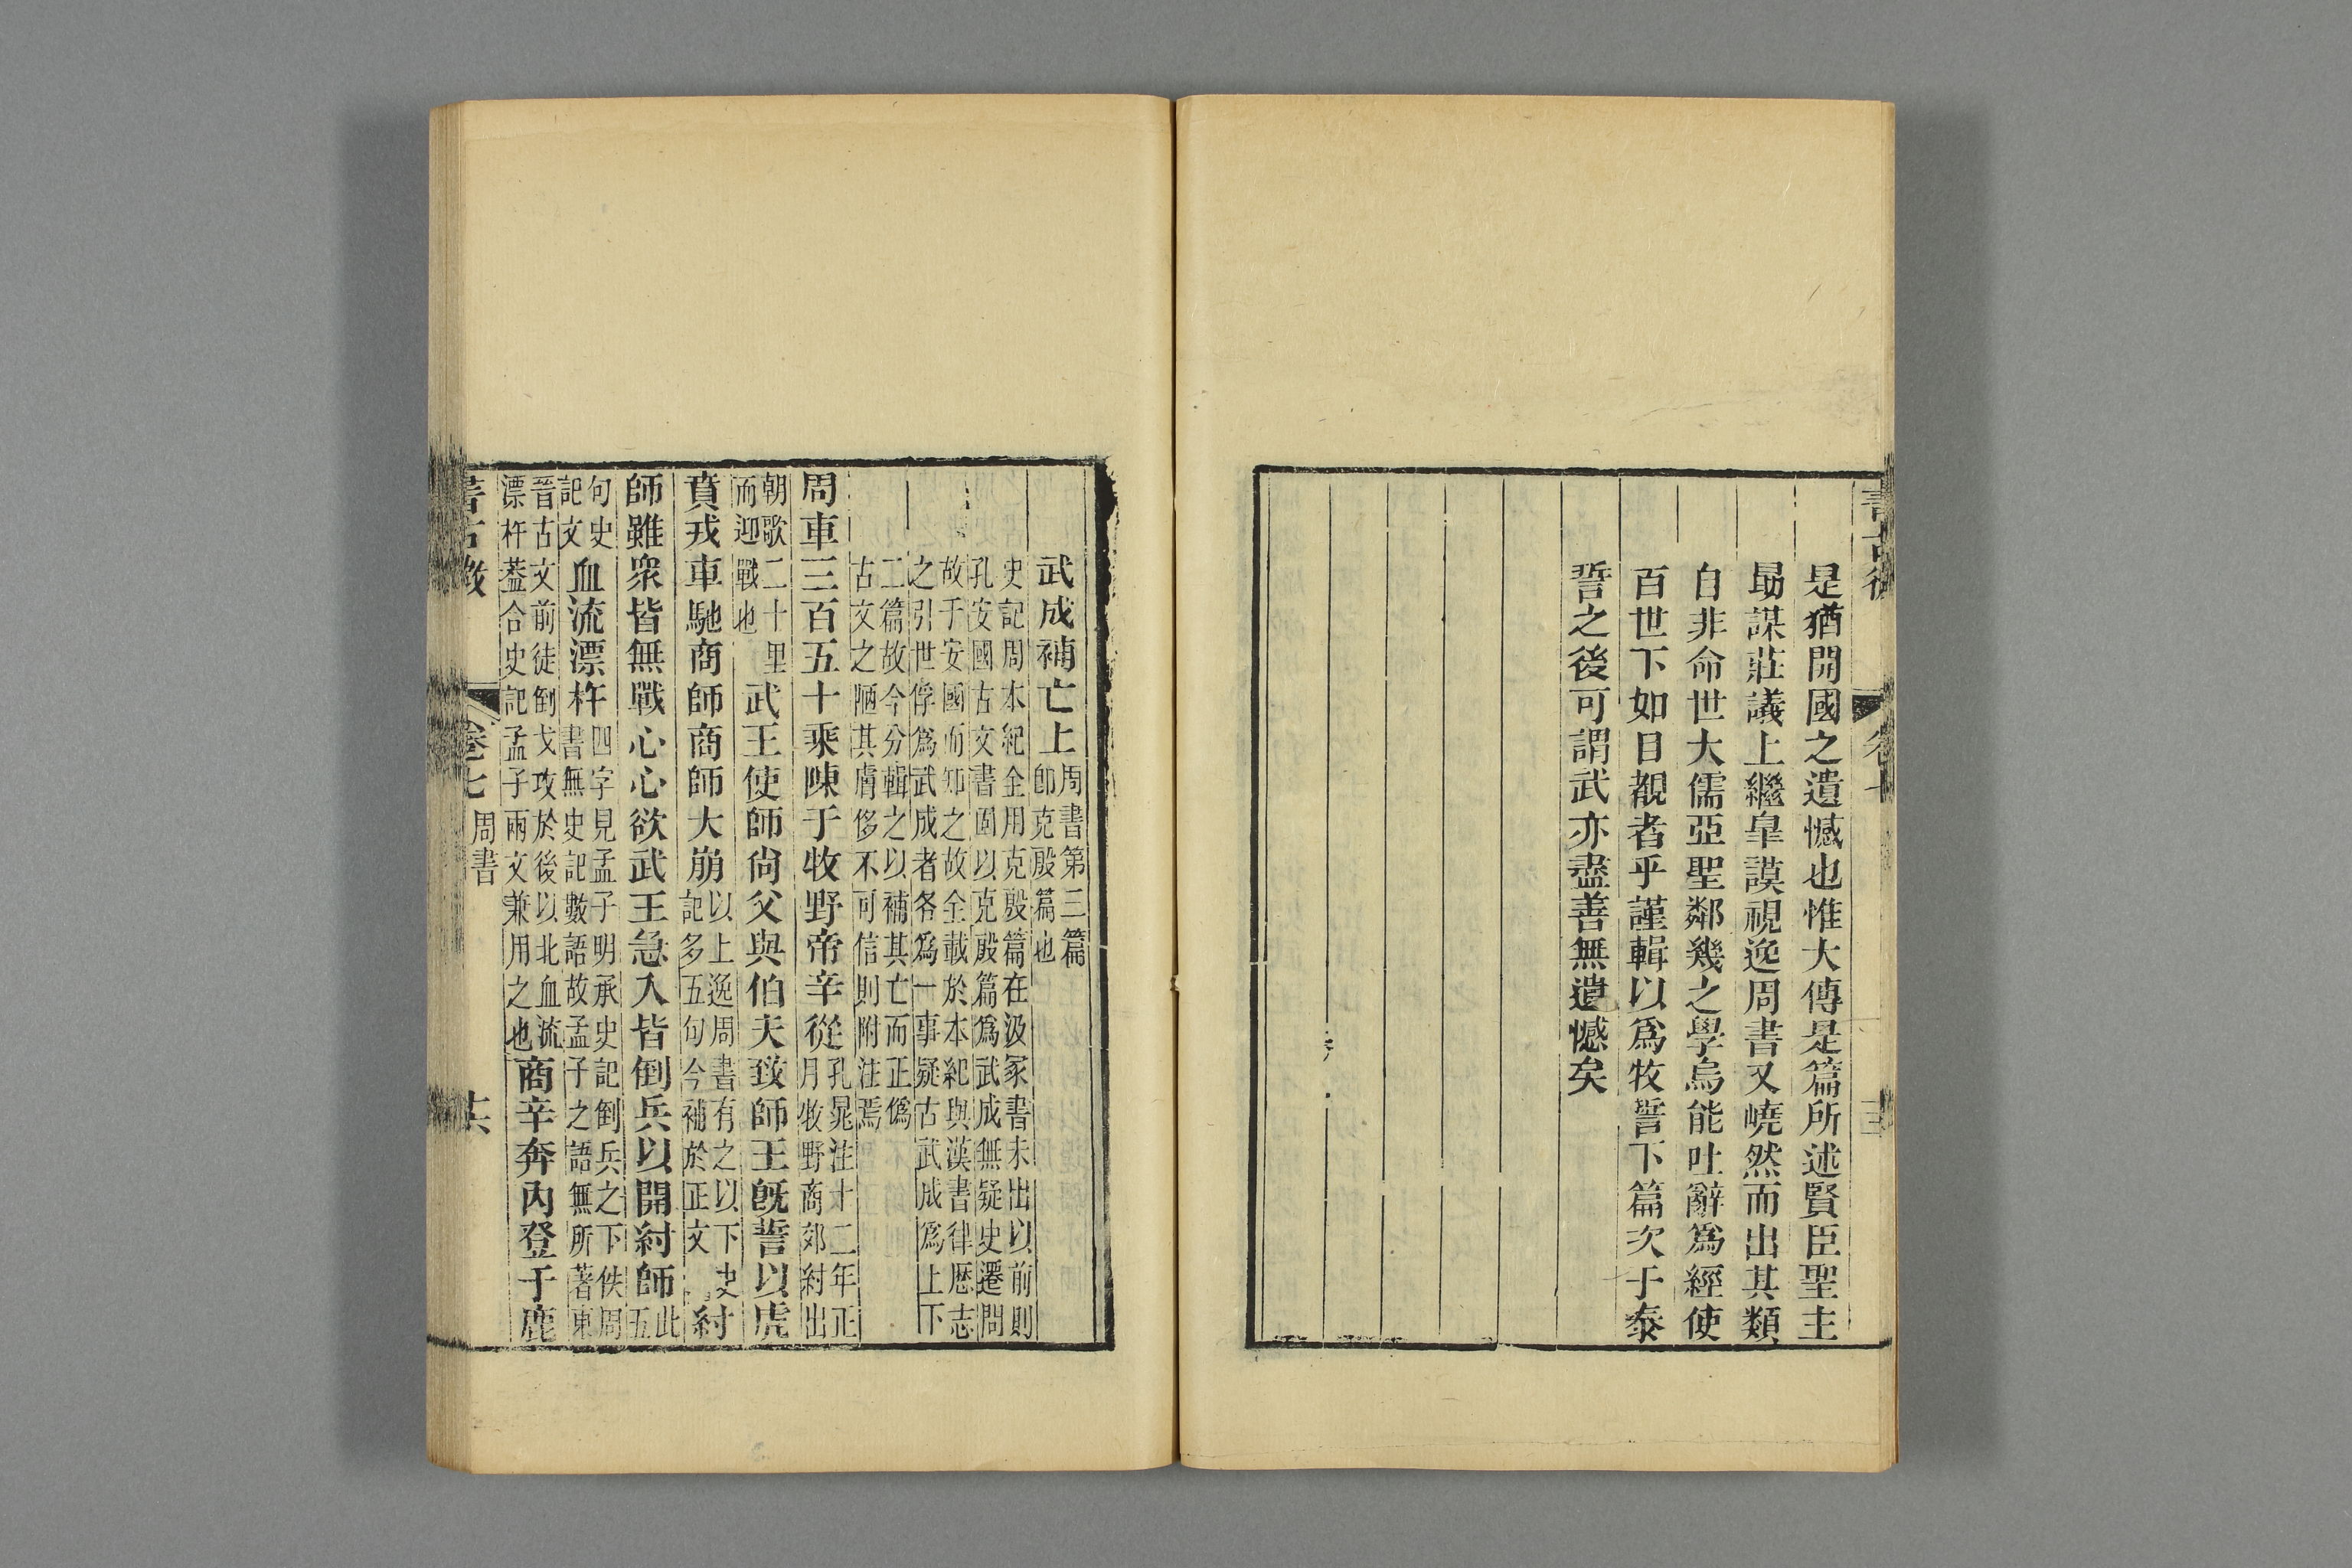 是猶開國之遺憾也惟大傳是篇所述賢臣聖主
勗謀莊議上繼臯謨視逸周書又嶢然而出其類
自非命世大儒亞聖鄰幾之學烏能吐辭爲經使
百世下如目覩者乎謹輯以爲牧誓下篇次于泰
誓之後可謂武亦盡善無遺憾矣
武成補亡上
周書第三篇
卽克殷篇也
史記周本紀全用克殷篇在汲冢書未出以前則
孔安國古文書固以克殷篇爲武成無疑史遷問
故于安國而知之故全載於本紀與漢書律歷志
之引世俘爲武成者各爲一事疑古武成爲上下
二篇故今分輯之以補其亡而正僞
古文之陋其膚侈不可信則附注焉
周車三百五十乘陳于牧野帝辛從
孔晁注十二年正
月牧野商郊紂出
朝歌二十里
而迎戰也
武王使師尙父與伯夫致師王旣誓以虎
賁戎車馳商師商師大崩
以上逸周書有之以下史
記多五句今補於正文
紂
師雖衆皆無戰心心欲武王急入皆倒兵以開紂師
此五
句史
記文
血流漂杵
四字見孟子明承史記倒兵之下佚周
書無史記數語故孟子之語無所著東
晉古文前徒倒戈攻於後以北血流
漂杵葢合史記孟子兩文兼用之也
商辛奔內登于鹿
書古微
卷七
周書